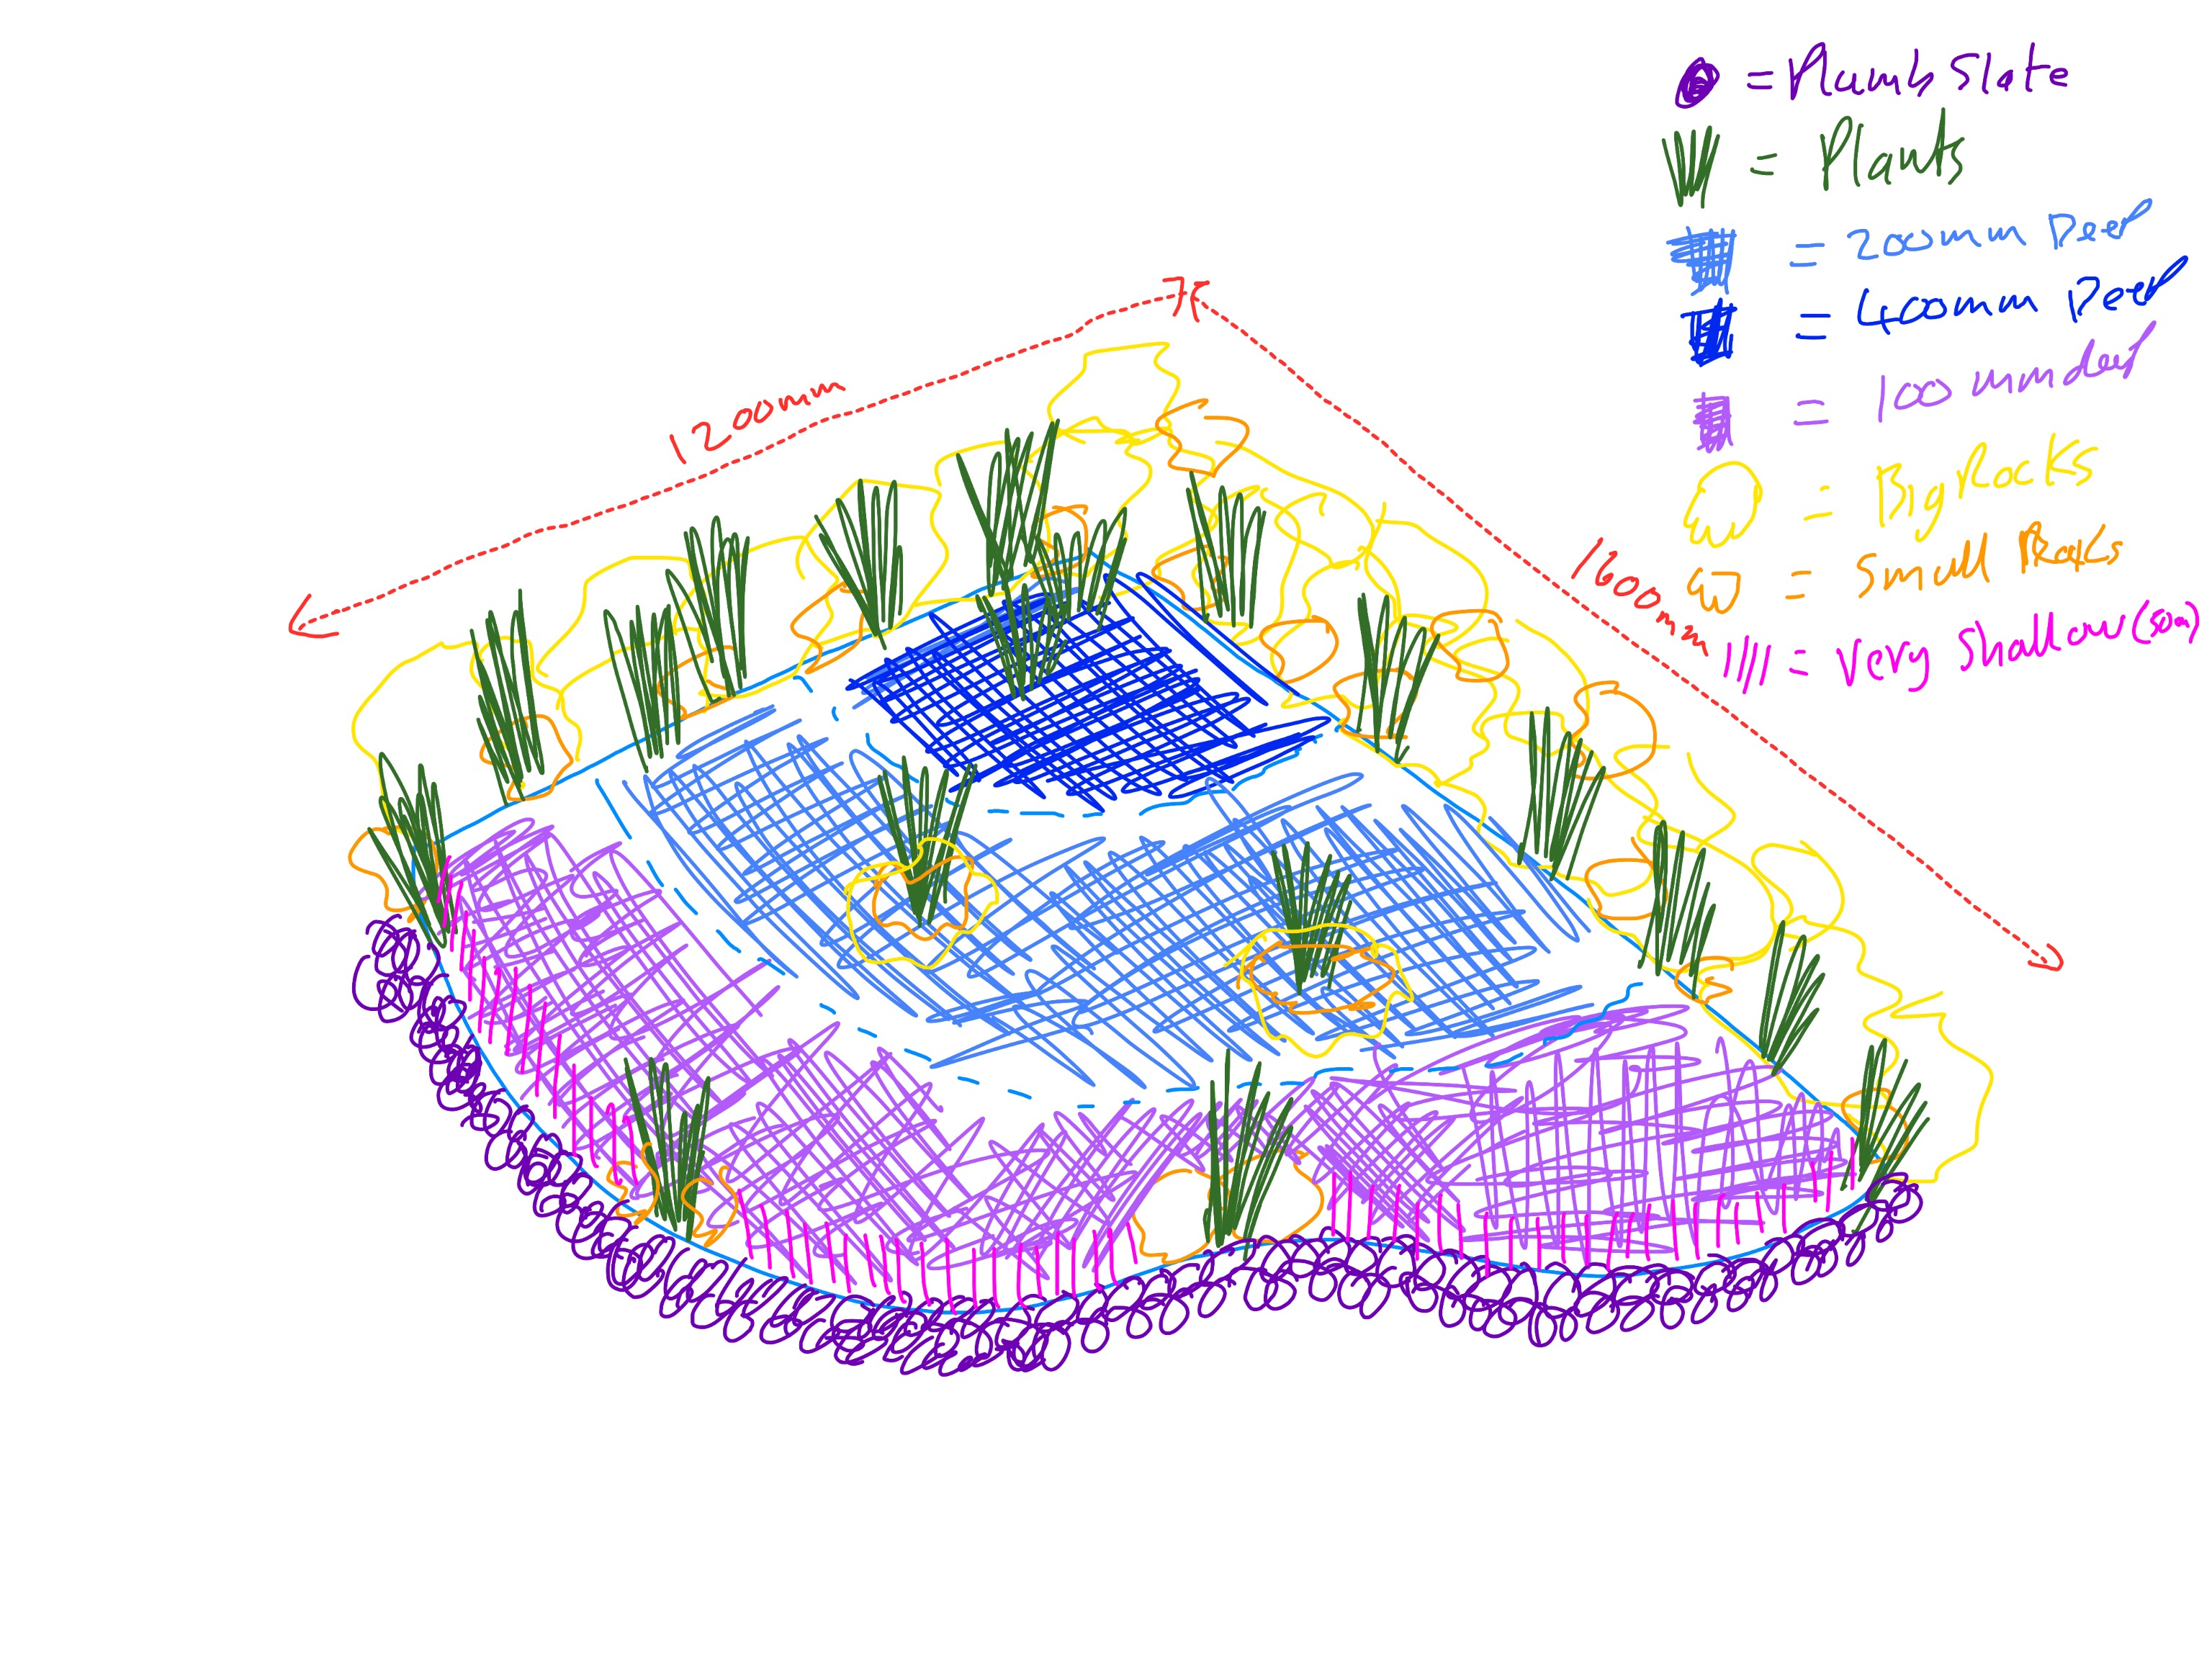 = Plumb Slate
= Plants
= 200mm Deep
= 400mm Deep
= 100mm deep
= Big Rocks
= Small Rocks
= Very Shallow (50m)
1200mm
1600mm